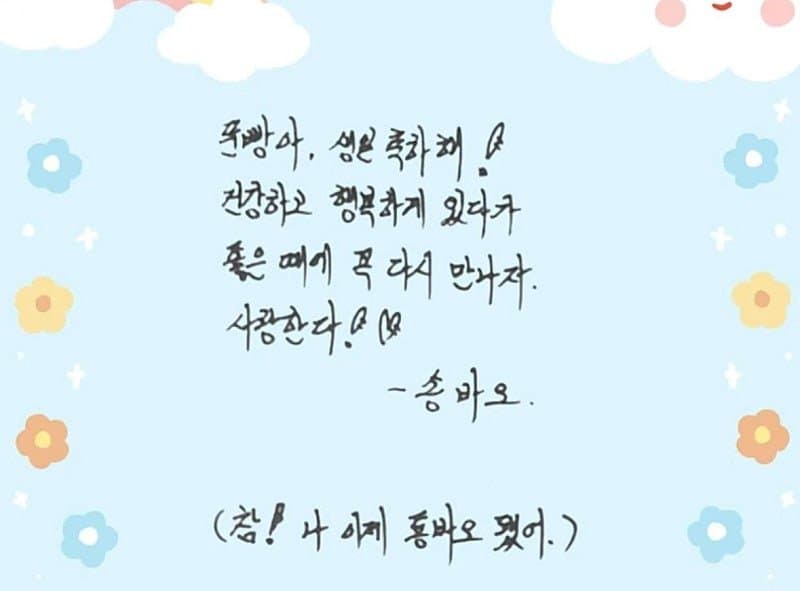 푼빵아, 생일 축하해!
건강하고 행복하게 있다가
좋은 때에 꼭 다시 만나자.
사랑한다!♡
- 송바오.
(참! 나 이제 통바오 됐어.)